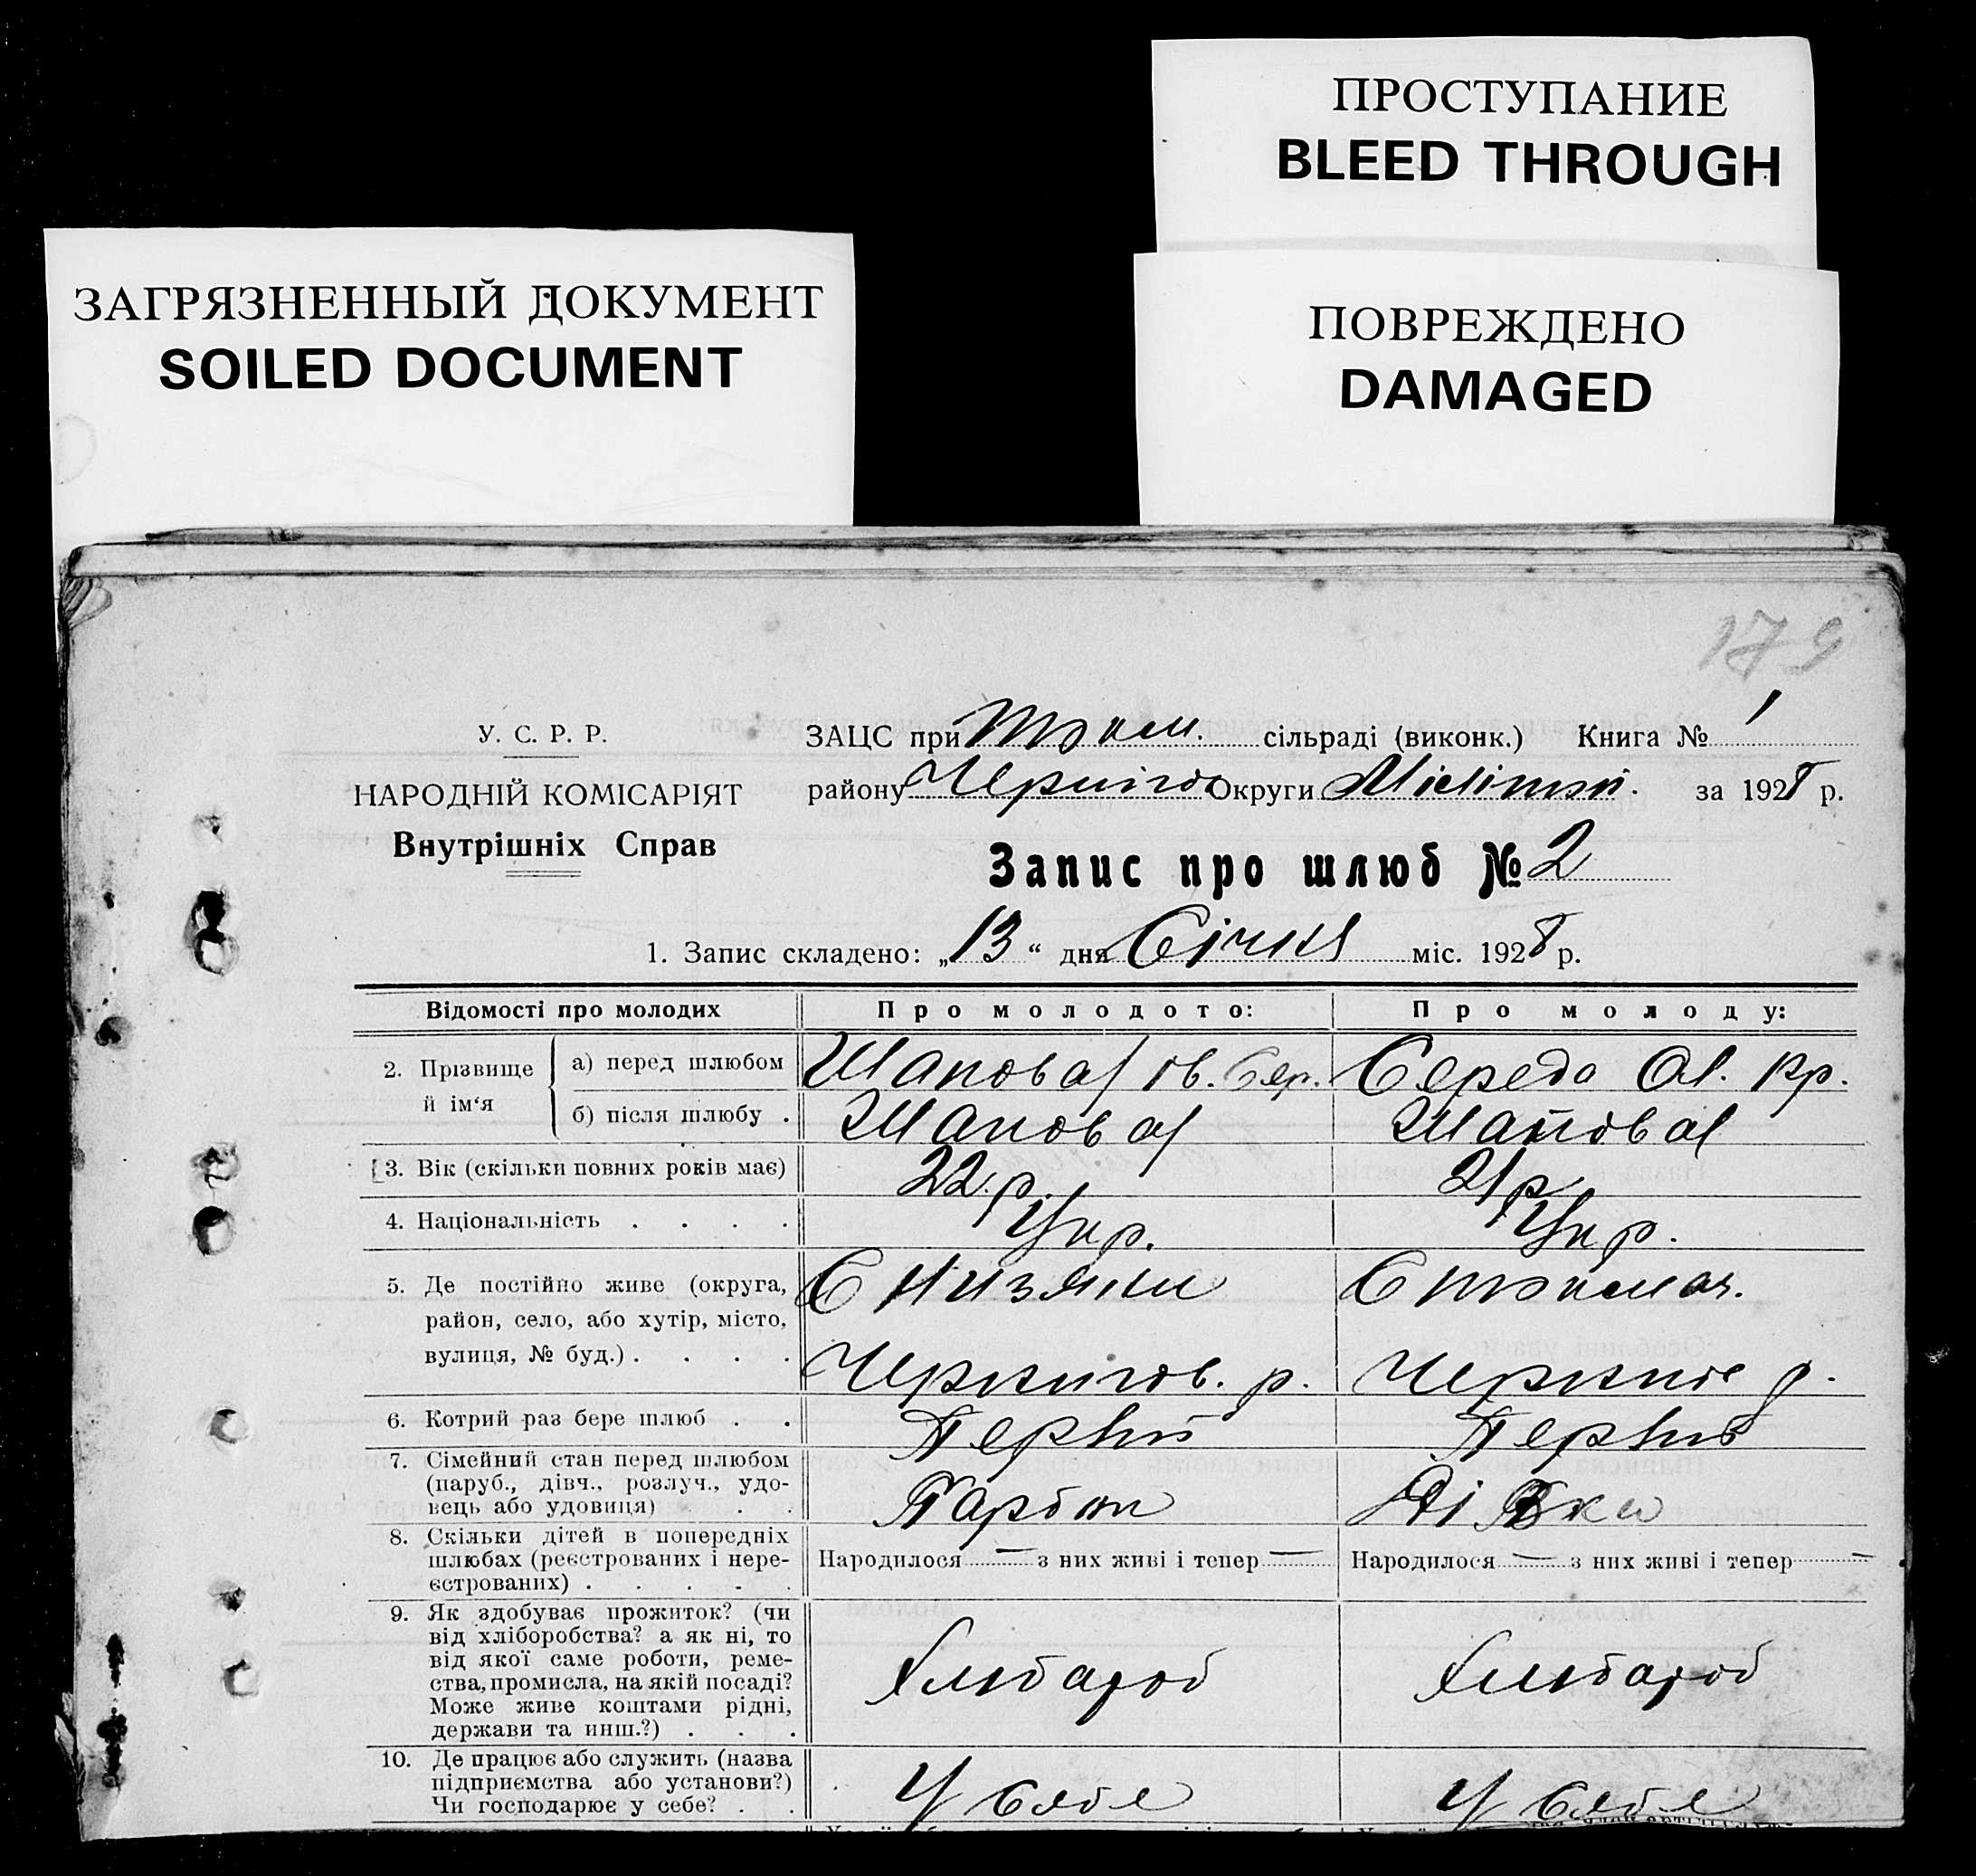 ПРОСТУПАНИЕ
BLEED THROUGH
ЗАГРЯЗНЕННЫЙ ДОКУМЕНТ
SOILED DOCUMENT
ПОВРЕЖДЕНО
DAMAGED
179
У. С. Р. Р.
НАРОДНІЙ КОМІСАРІЯТ
Внутрішніх Справ
ЗАЦС при Токм. сільраді (виконк.) Книга № 1
району Чернігов Округи за 1928 р.
Запис про шлюб № 2
1. Запис складено: „13“ дня Січня міс. 1928 р.
Відомості про молодих Про молодого: Про молоду:
2. Прізвище й ім‘я
а) перед шлюбом Шаповал Ів. Сер. Середа Ол. Кр.
б) після шлюбу . Шаповал Шаповал
3. Вік (скільки повних років має) 22 р. 21 р
4. Національність . . . . Укр. Укр.
5. Де постійно живе (округа,
район, село, або хутір, місто,
вулиця, № буд.) . . . .
С Низяни С Токмач.
Чернигов. р. Черниг р.
6. Котрий раз бере шлюб . . Первий Первий
7. Сімейний стан перед шлюбом
(паруб., дівч., розлуч., удо-
вець або удовиця) . .
Парубок Дівка
8. Скільки дітей в попередніх
шлюбах (реєстрованих і нере-
єстрованих) . . . . .
Народилося — з них живі і тепер — Народилося — з них живі і тепер —
9. Як здобуває прожиток? (чи
від хліборобства? а як ні, то
від якої саме роботи, реме-
ства, промисла, на якій посаді?
Може живе коштами рідні,
держави та инш.?) . . .
Хлібароб Хлібароб
10. Де працює або служить (назва
підприємства або установи?)
Чи господарює у себе? . .
У себе У себе